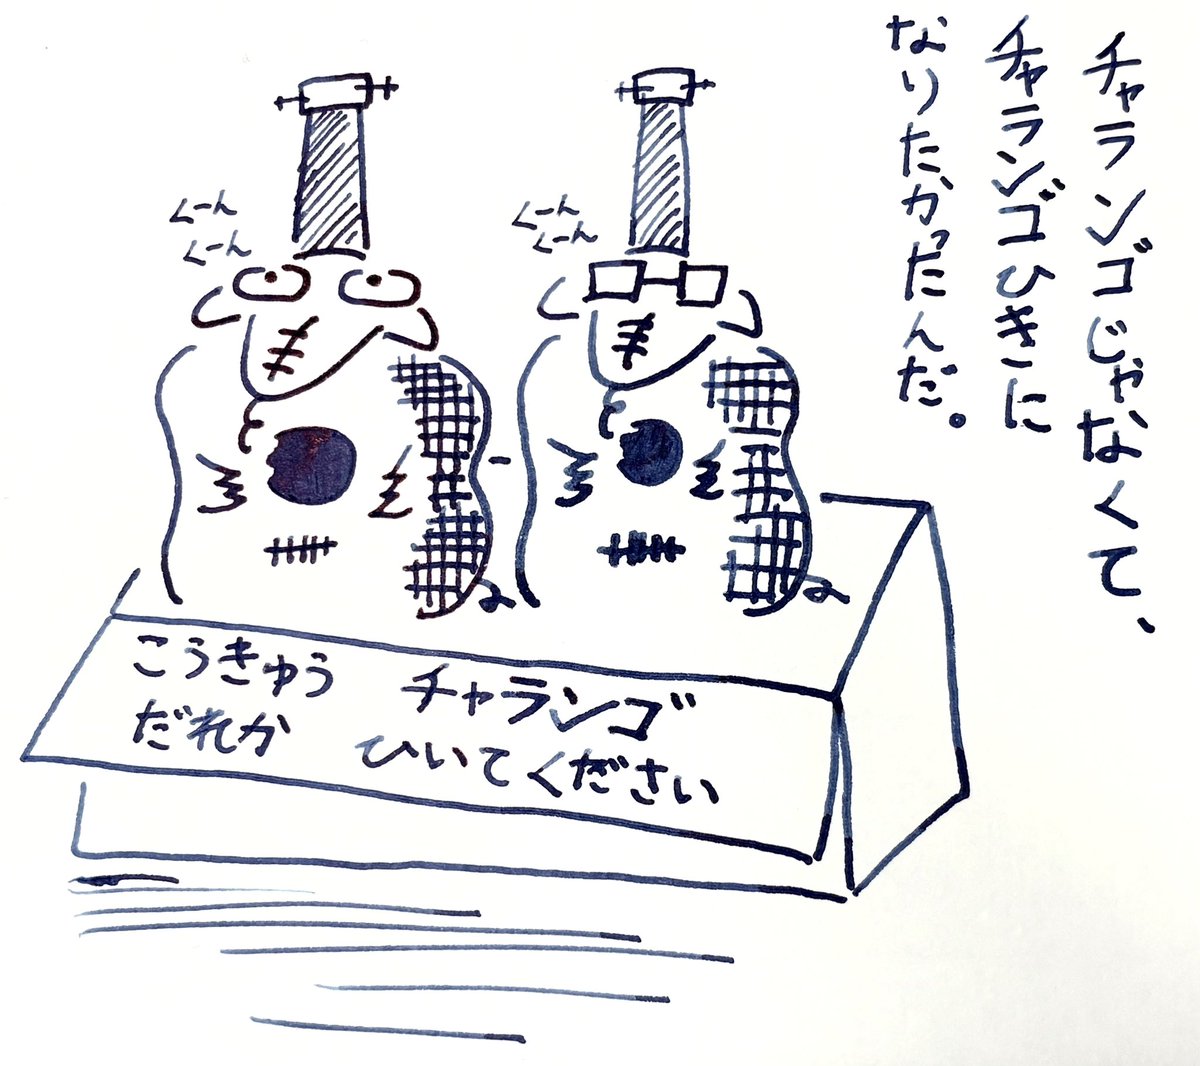 チャランゴじゃなくて、
チャランゴひきに
なりたかったんだ。
くーん
くーん
くーん
くーん
こうきゅう チャランゴ
だれか ひいてください